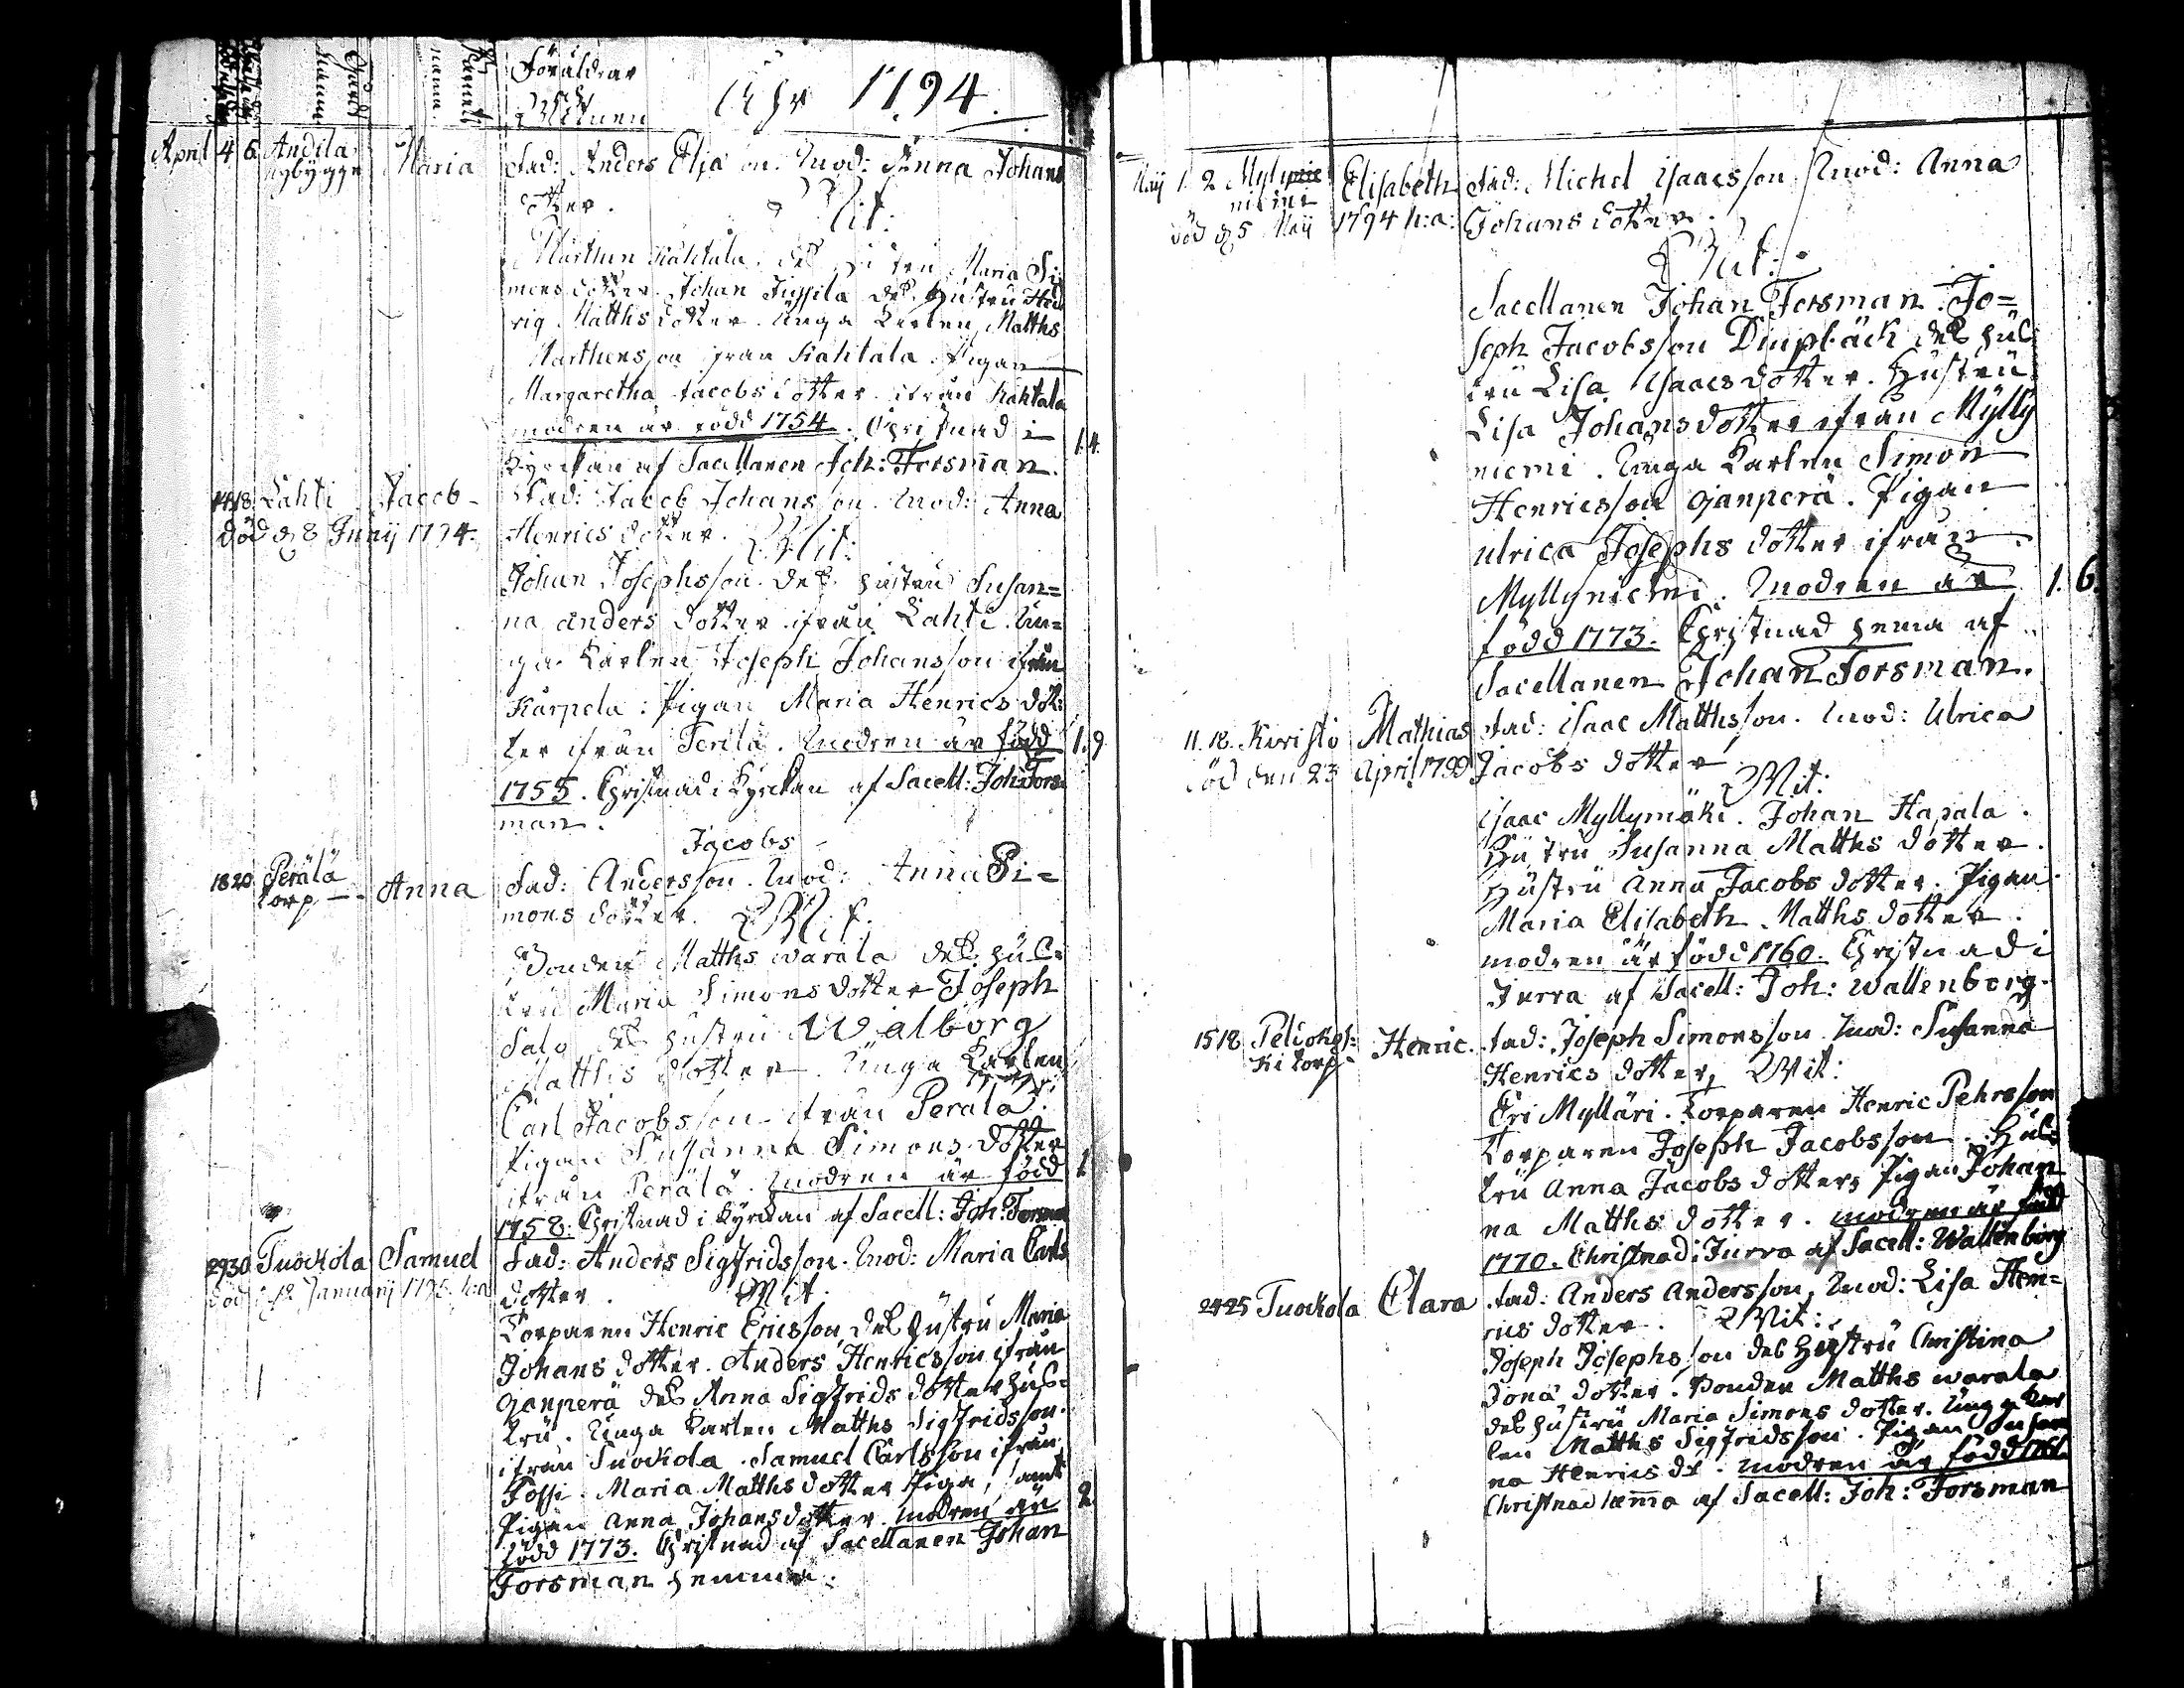 Föräldrar
och
Witnen
Åhr 1794.
April 4 6 Andila Maria Fad: Anders Elja son. Mod: Anna Johans
nybygge dotter. Wit:
Marthen Kahtala des Hustru Maria Si
mons dotter. Johan Jussila des Hustru Hed
vig Matths dotter. Unga Karlen Matths
Marthensson ifrån Kahtala. Pigan
Margaretha Jacobs dotter ifrån Kahtala
modren är född 1754. Christnad i
Kyrckan af Sacellanen Joh: Forsman. 1.4.
18 Lahti Jacob Fad: Jacob Johansson. Mod: Anna
död d 8 Junij 1794. Henrics dotter. Wit:
Johan Josephsson des hustru Susan=
na Anders dotter ifrån Lahti. Un=
ga Karlen Joseph Johansson ifrån
Karpela. Pigan Maria Henrics dot:
ter ifrån Perilä. Modren är född 1.9
1755. Christnad i Kyrckan af Sacell: Joh: Fors
man.
Jacobs
18 20 Perälä Anna Fad: Andersson. Mod: Anna Si=
torp mons dotter. Wit.
Bonden Matths Warala des hus=
tru Maria Simons dotter Joseph
Salo des hustru Walborg
Matths dotter. Unga Karlen
Carl Jacobsson ifrån Perälä.
Pigan Susanna Simons dotter
ifrån Perälä. Modren är född 1
1758. Christnad i Kyrckan af Sacell: Joh: Forsman
29 30 Tuockola Samuel Fad: Anders Sigfridsson. Mod: Maria Carls
död d 12 Januarij 1795. h:a dotter. Wit.
Torparen Henric Ericsson des Hustru Maria
Johans dotter. Anders Henricsson ifrån
Ojanperä des Anna Sigfrids dotter hus=
tru. Unga Karlen Matths Sigfridsson
ifrån Tuockola. Samuel Carlsson ifrån
Fossi. Maria Matths dotter Piga, samt
Pigan Anna Johans dotter. Modren är 2
född 1773. Christnad af Sacellanen Johan
Forsman hemma.
Maij 1. 2 Mylly Elisabeth Fad: Michel Isaacsson Mod: Anna
niemi
död d 5 Maij 1794 h:a: Johans dotter.
Wit:
Sacellanen Johan Forsman. Jo=
seph Jacobsson Diupbäck des hus
tru Lisa Isaacs dotter. Hustru
Lisa Johans dotter ifrån Mylly
niemi. Unga Karlen Simon
Henricsson Ojanperä. Pigan
Ulrica Josephs dotter ifrån
Myllyniemi. Modren är 1. 6.
född 1773. Christnad hema af
Sacellanen Johan Forsman.
11. 18. Koristo Mathias Fad: Isaac Matthsson. Mod: Ulrica
död den 23 April 1799 Jacobs dotter
Wit:
Isaac Myllymäki. Johan Hapala.
Hustru Susanna Matths dotter.
Hustru Anna Jacobs dotter. Pigan
Maria Elisabeth Matths dotter.
modren är född 1760. Christnad i
Jurra af Sacell: Joh: Wallenborg.
15 18 Henric. Fad: Joseph Simonsson. Mod: Susanna
ki torp Henrics dotter, Wit:
Eri Mylläri. Torparen Henric Pehrsson
Torparen Joseph Jacobsson. Hus
tru Anna Jacobs dotter, Pigan Johan
na Matths dotter. modren är född
1770. Christnad i Jurra af Sacell: Wallenborg
24 25 Tuockola Clara Fad: Anders Andersson, Mod: Lisa Hen=
rics dotter. Wit:
Joseph Josephsson des Hustru Christina
Jona dotter. Bonden Matths Warala
des hustru Maria Simons dotter. Unga Kar
len Matths Sigfridsson. Pigan Susan
na Henrics dr. modren är född 1761.
Christnad hemma af Sacell: Joh: Forsman